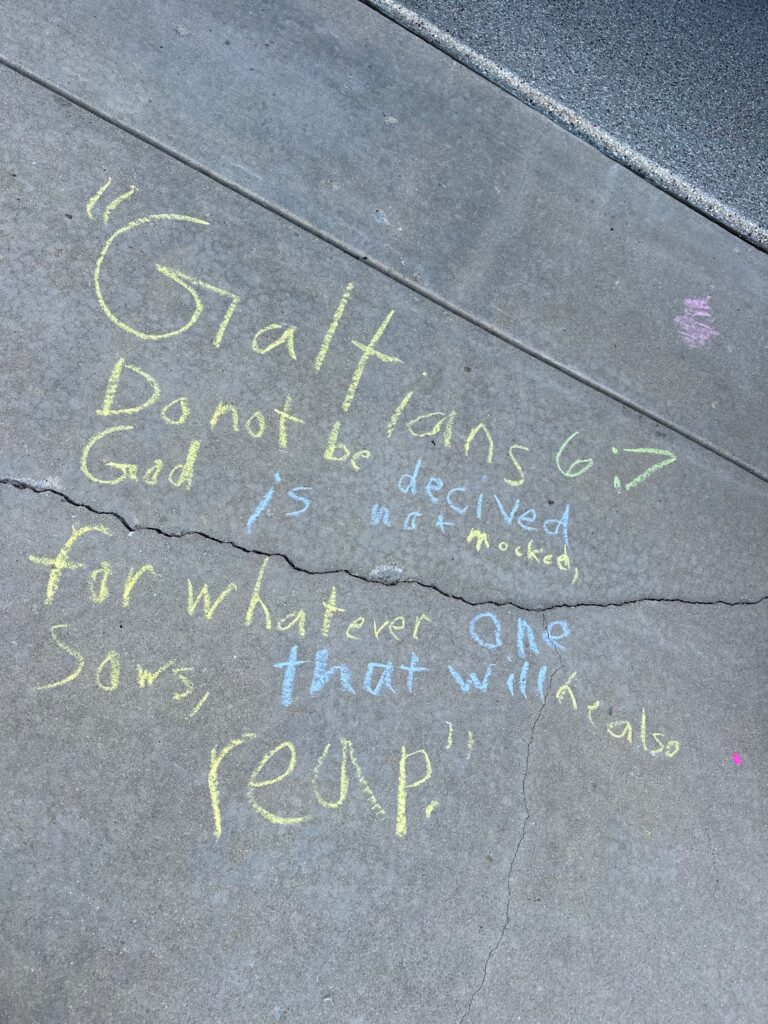 "Galtians 6:7
Do not be decived
God is not mocked,
for whatever one
sows, that will he also
reap."